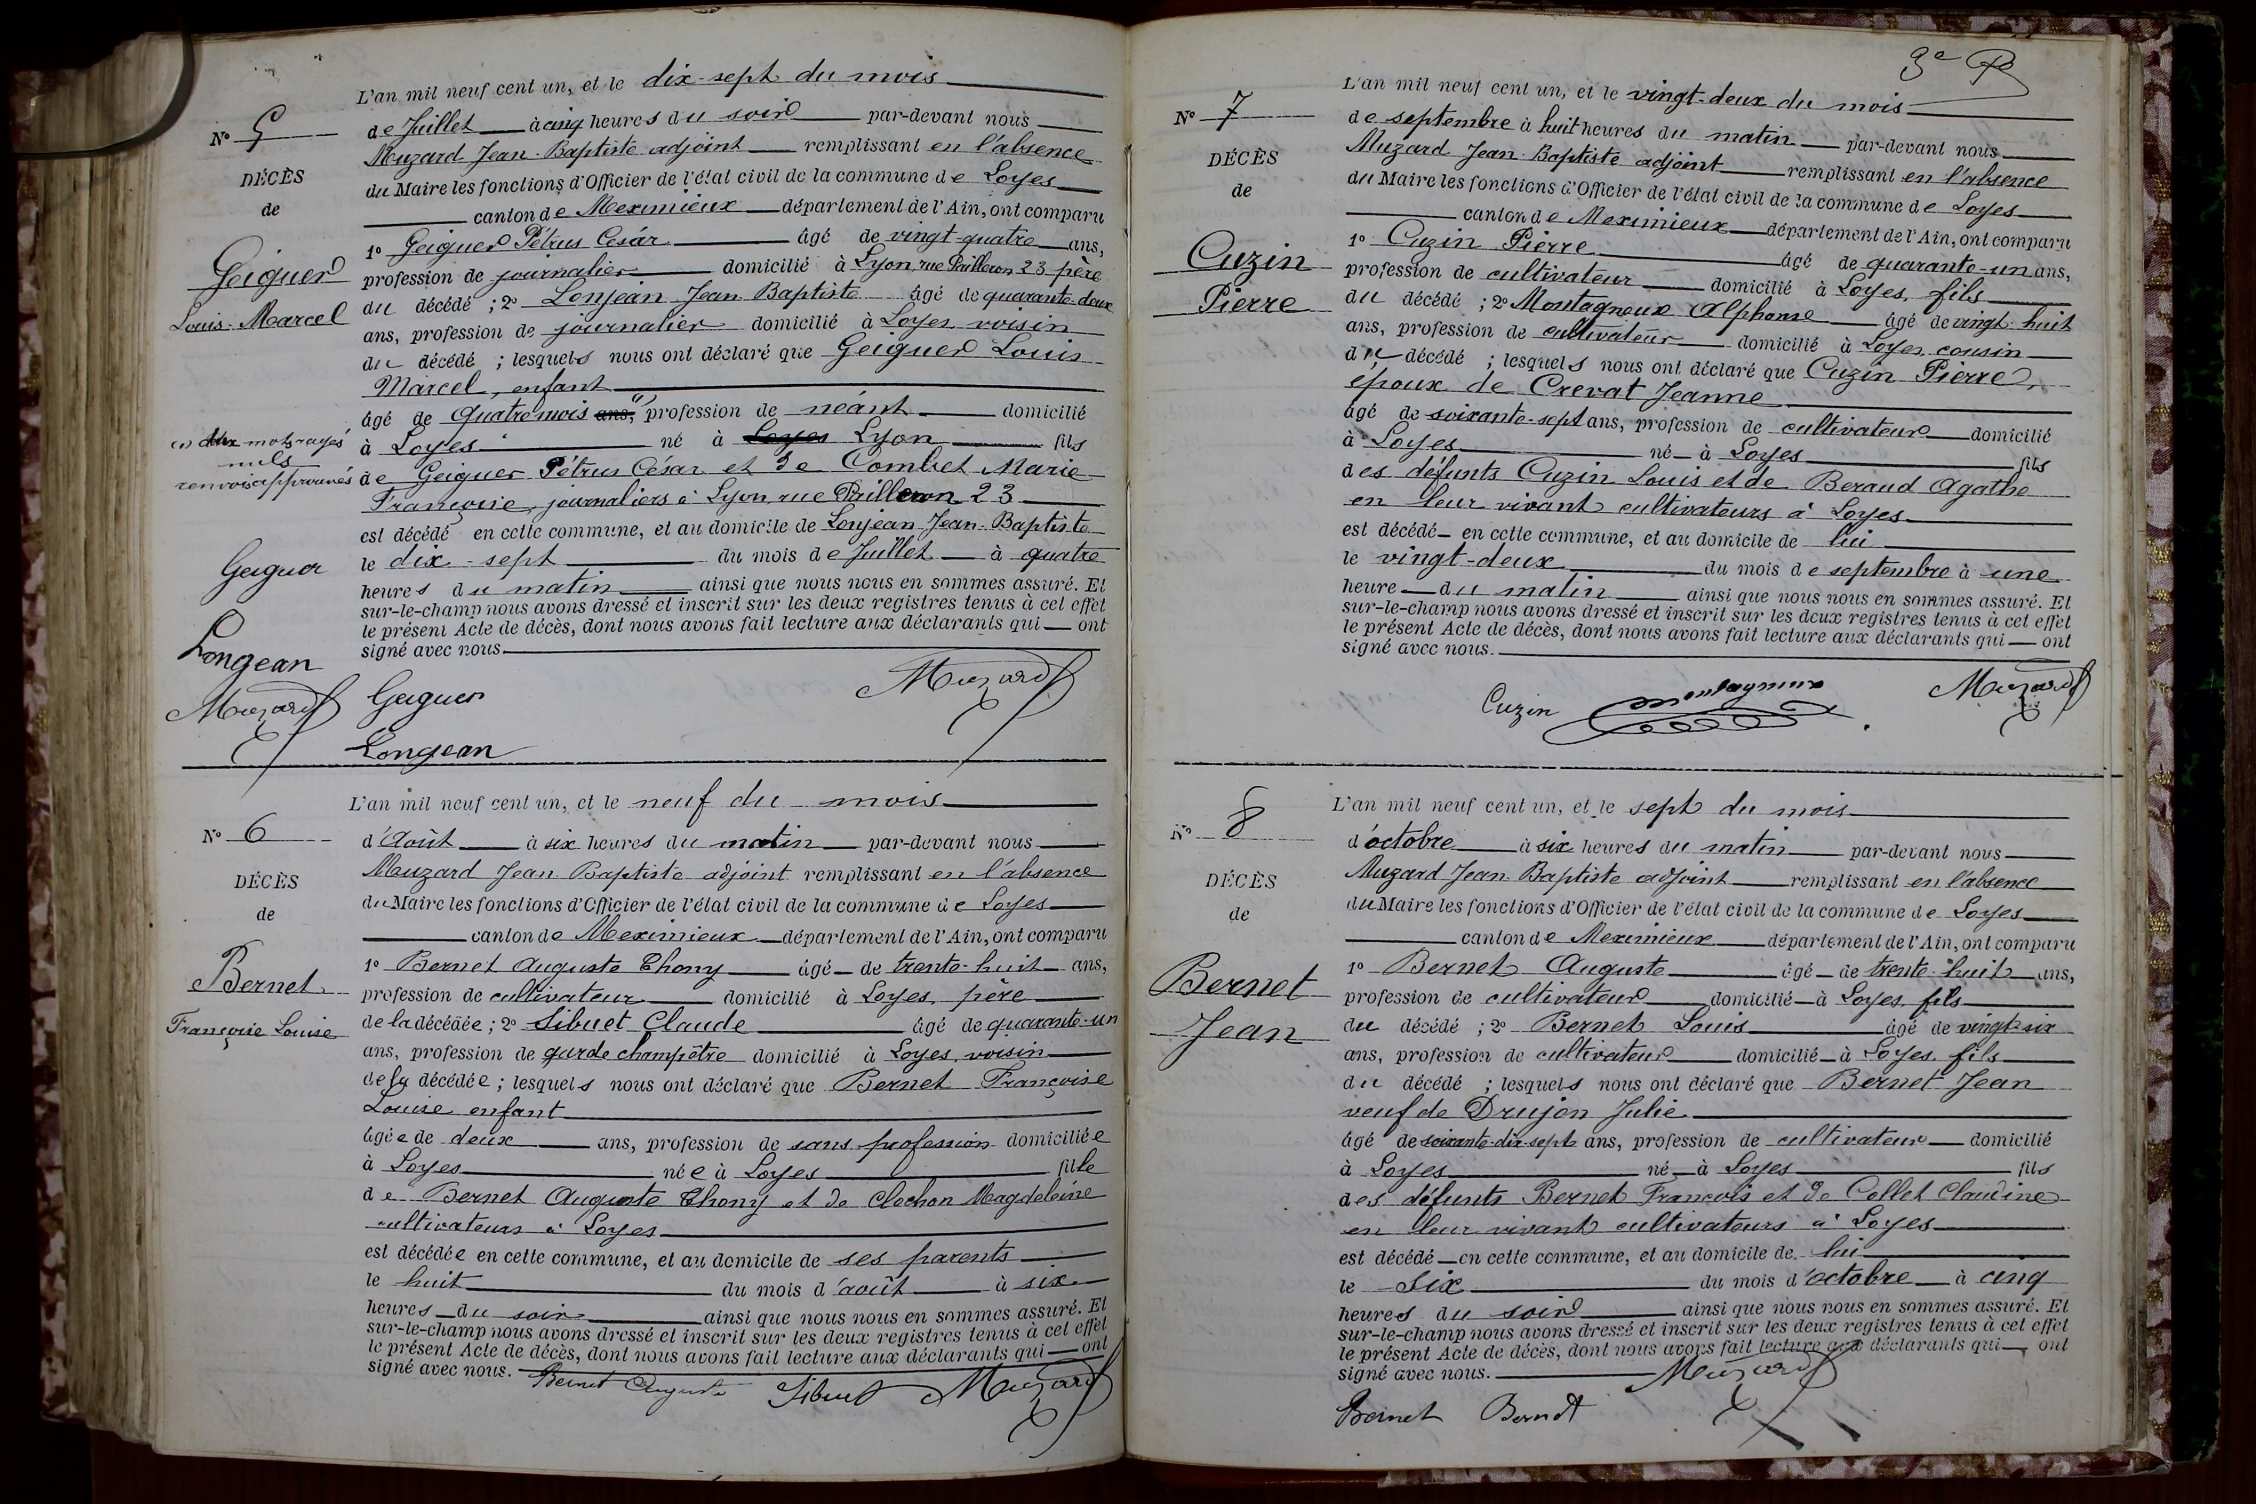 L'an mil neuf cent un, et le dix-sept du mois
N° 5
de Juillet à cinq heures du soir par-devant nous
Muzard Jean-Baptiste adjoint remplissant en l'absence
DÉCÈS
du Maire les fonctions d'Officier de l'état civil de la commune de Loyes
de
canton de Meximieux département de l'Ain, ont comparu
1° Geiguer Pétrus César âgé de vingt-quatre ans,
Geiguer
profession de journalier domicilié à Lyon, rue Pailleron 23 père
Louis-Marcel
du décédé ; 2° Lonjean Jean Baptiste âgé de quarante-deux
ans, profession de journalier domicilié à Loyes voisin
du décédé ; lesquels nous ont déclaré que Geiguer Louis
Marcel, enfant
âgé de quatre mois ans, profession de néant domicilié
mots rayés
à Loyes né à Loyes Lyon fils
nuls
de Geiguer Pétrus César et de Combet Marie
renvois approuvés
Françoise, journaliers à Lyon, rue Pailleron 23
est décédé en cette commune, et au domicile de Lonjean Jean-Baptiste
le dix-sept du mois de Juillet à quatre
Geiguer
heures du matin ainsi que nous nous en sommes assuré. Et
sur-le-champ nous avons dressé et inscrit sur les deux registres tenus à cet effet
le présent Acte de décès, dont nous avons fait lecture aux déclarants qui ont
signé avec nous.
Longean
Muzard Geiguer Muzard
Longean
L'an mil neuf cent un, et le neuf du mois
N° 6
d'Août à six heures du matin par-devant nous
Muzard Jean-Baptiste adjoint remplissant en l'absence
DÉCÈS
du Maire les fonctions d'Officier de l'état civil de la commune de Loyes
de
canton de Meximieux département de l'Ain, ont comparu
1° Bernet Auguste Thony âgé de trente-huit ans,
Bernet
profession de cultivateur domicilié à Loyes, père
Françoise Louise
de la décédée ; 2° Sibuet Claude âgé de quarante-un
ans, profession de garde champêtre domicilié à Loyes, voisin
de la décédée ; lesquels nous ont déclaré que Bernet Françoise
Louise enfant
âgée de deux ans, profession de sans profession domiciliée
à Loyes née à Loyes fille
de Bernet Auguste Thony et de Clechon Magdeleine
cultivateurs à Loyes
est décédée en cette commune, et au domicile de ses parents
le huit du mois d'août à six
heures du soir ainsi que nous nous en sommes assuré. Et
sur-le-champ nous avons dressé et inscrit sur les deux registres tenus à cet effet
le présent Acte de décès, dont nous avons fait lecture aux déclarants qui ont
signé avec nous.
Bernet Auguste Sibuet Muzard
3e
L'an mil neuf cent un, et le vingt-deux du mois
N° 7
de septembre à huit heures du matin par-devant nous
Muzard Jean-Baptiste adjoint remplissant en l'absence
DÉCÈS
du Maire les fonctions d'Officier de l'état civil de la commune de Loyes
de
canton de Meximieux département de l'Ain, ont comparu
1° Cuzin Pierre âgé de quarante-un ans,
Cuzin
profession de cultivateur domicilié à Loyes, fils
Pierre
du décédé ; 2° Montagneux Alphonse âgé de vingt-huit
ans, profession de cultivateur domicilié à Loyes, cousin
du décédé ; lesquels nous ont déclaré que Cuzin Pierre,
époux de Crevat Jeanne
âgé de soixante-sept ans, profession de cultivateur domicilié
à Loyes né à Loyes fils
des défunts Cuzin Louis et de Beraud Agathe
en leur vivant cultivateurs à Loyes
est décédé en cette commune, et au domicile de lui
le vingt-deux du mois de septembre à une
heure du matin ainsi que nous nous en sommes assuré. Et
sur-le-champ nous avons dressé et inscrit sur les deux registres tenus à cet effet
le présent Acte de décès, dont nous avons fait lecture aux déclarants qui ont
signé avec nous.
Cuzin Montagneux Muzard
L'an mil neuf cent un, et le sept du mois
N° 8
d'octobre à six heures du matin par-devant nous
Muzard Jean-Baptiste adjoint remplissant en l'absence
DÉCÈS
du Maire les fonctions d'Officier de l'état civil de la commune de Loyes
de
canton de Meximieux département de l'Ain, ont comparu
1° Bernet Auguste âgé de trente-huit ans,
Bernet
profession de cultivateur domicilié à Loyes, fils
Jean
du décédé ; 2° Bernet Louis âgé de vingt-six
ans, profession de cultivateur domicilié à Loyes, fils
du décédé ; lesquels nous ont déclaré que Bernet Jean
veuf de Drujon Julie
âgé de soixante-dix-sept ans, profession de cultivateur domicilié
à Loyes né à Loyes fils
des défunts Bernet François et de Collet Claudine
en leur vivant cultivateurs à Loyes
est décédé en cette commune, et au domicile de lui
le six du mois d'octobre à cinq
heures du soir ainsi que nous nous en sommes assuré. Et
sur-le-champ nous avons dressé et inscrit sur les deux registres tenus à cet effet
le présent Acte de décès, dont nous avons fait lecture aux déclarants qui ont
signé avec nous. Muzard
Bernet Bernet